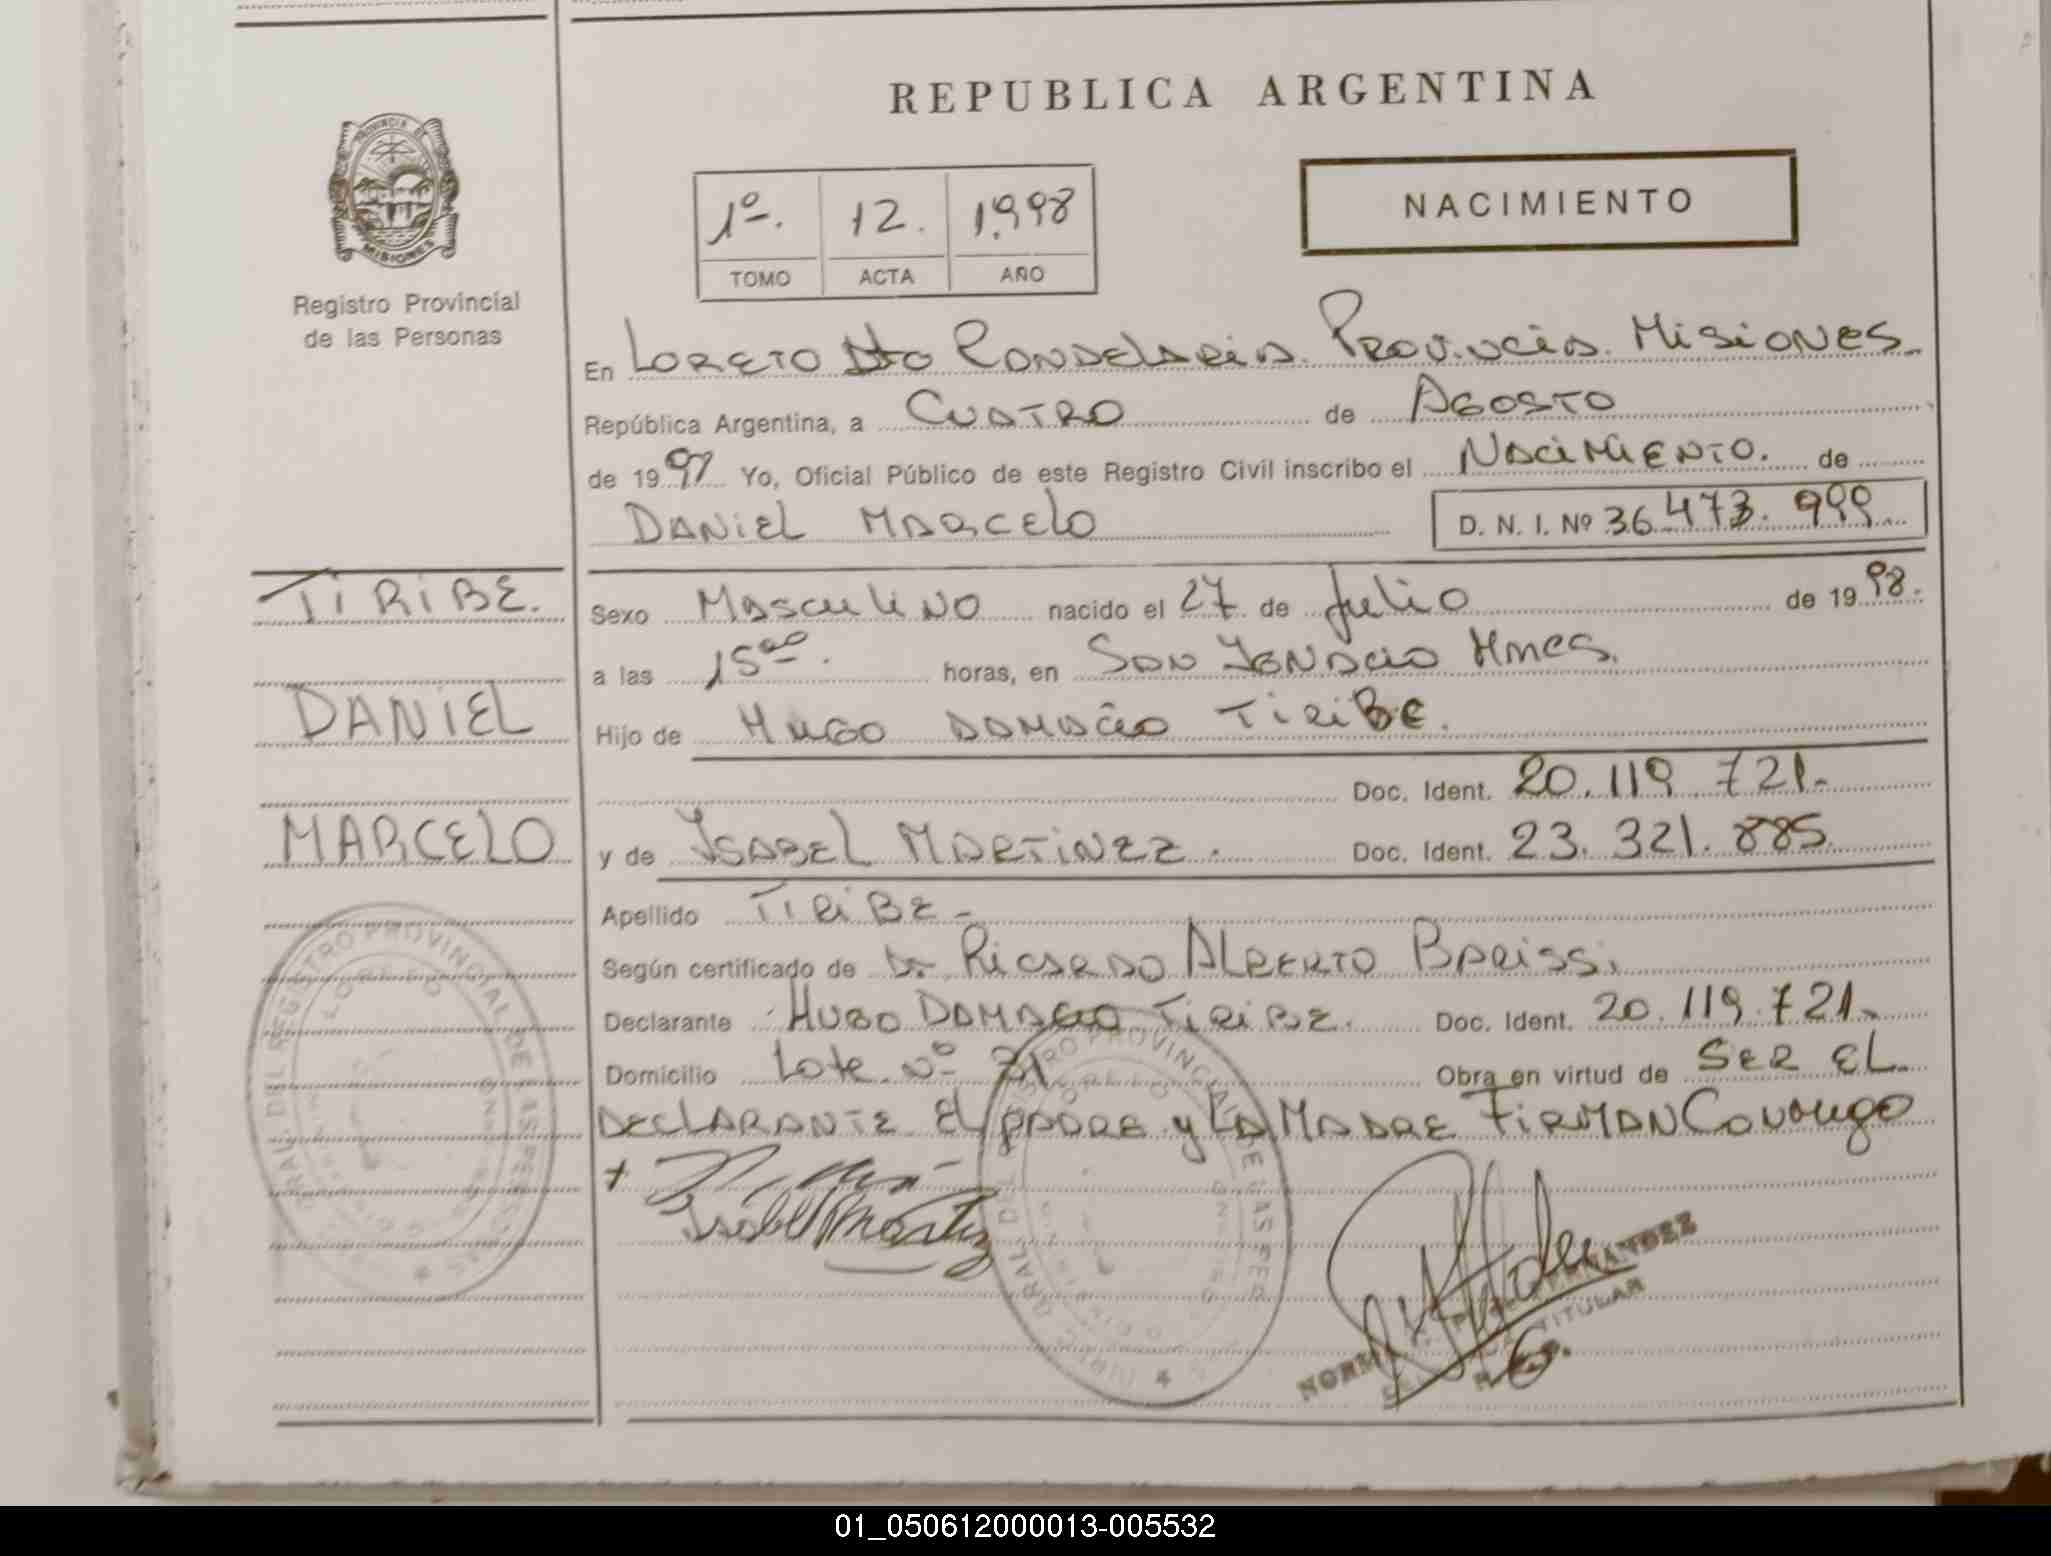 REPUBLICA ARGENTINA
PROVINCIA DE
MISIONES
Registro Provincial
de las Personas
1º. 12. 1998
TOMO ACTA AÑO
NACIMIENTO
En LORETO Dto CANDELARIA. PROVINCIA. MISIONES.
República Argentina, a CUATRO de AGOSTO
de 1997 Yo, Oficial Público de este Registro Civil inscribo el NACIMIENTO. de
DANIEL MARCELO D. N. I. Nº 36.473.999
TIRIBE.
Sexo MASCULINO nacido el 27 de Julio de 1998.
a las 15⁰⁰. horas, en SAN IGNACIO Mnes.
DANIEL
Hijo de HUGO DAMACIO TIRIBE.
Doc. Ident. 20.119.721.
MARCELO
y de ISABEL MARTINEZ. Doc. Ident. 23.321.885
Apellido TIRIBE-
Según certificado de Dr RICARDO ALBERTO BARISSI
Declarante HUGO DAMACIO TIRIBE. Doc. Ident. 20.119.721.
Domicilio Lote Nº 71 Obra en virtud de SER EL
DECLARANTE EL PADRE y LA MADRE FIRMAN Conmigo
Isabel Martinez
REGISTRO PROVINCIAL DE LAS PERSONAS
LORETO
REGISTRO PROVINCIAL DE LAS PER
LORETO
FERNANDEZ
TITULAR
01_050612000013-005532